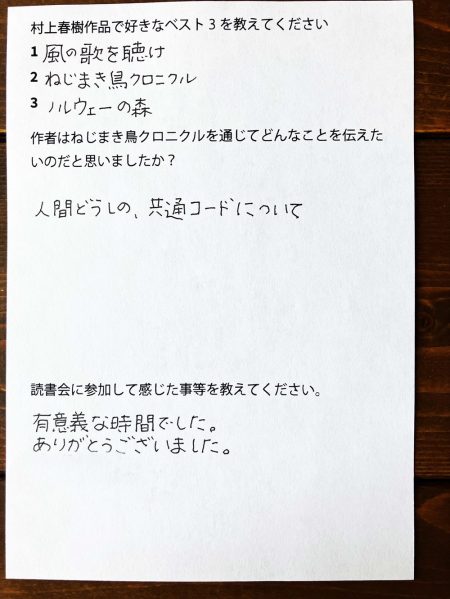 村上春樹作品で好きなベスト3を教えてください
1 風の歌を聴け
2 ねじまき鳥クロニクル
3 ノルウェーの森
作者はねじまき鳥クロニクルを通じてどんなことを伝えた
いのだと思いましたか？
人間どうしの、共通コードについて
読書会に参加して感じた事等を教えてください。
有意義な時間でした。
ありがとうございました。